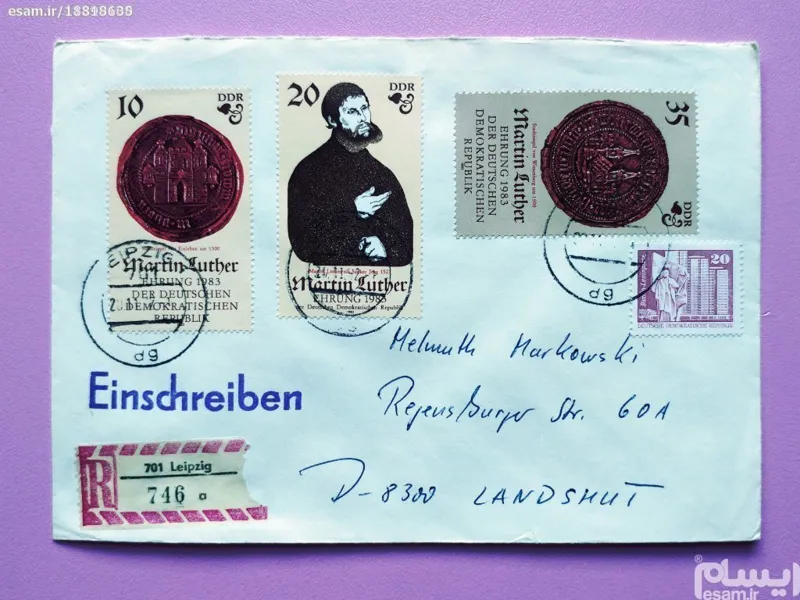 esam.ir
10
DDR
Martin Luther
EHRUNG 1983
DER DEUTSCHEN
DEMOKRATISCHEN
REPUBLIK
20
DDR
Martin Luther
EHRUNG 1983
der Deutschen Demokratischen Republik
35
DDR
Martin Luther
EHRUNG 1983
DER DEUTSCHEN
DEMOKRATISCHEN
REPUBLIK
20
DEUTSCHE DEMOKRATISCHE REPUBLIK
LEIPZIG
701
Einschreiben
R
701 Leipzig
746 a
Helmuth Markowski
Regensburger Str. 60A
D-8300 LANDSHUT
ایسام
esam.ir